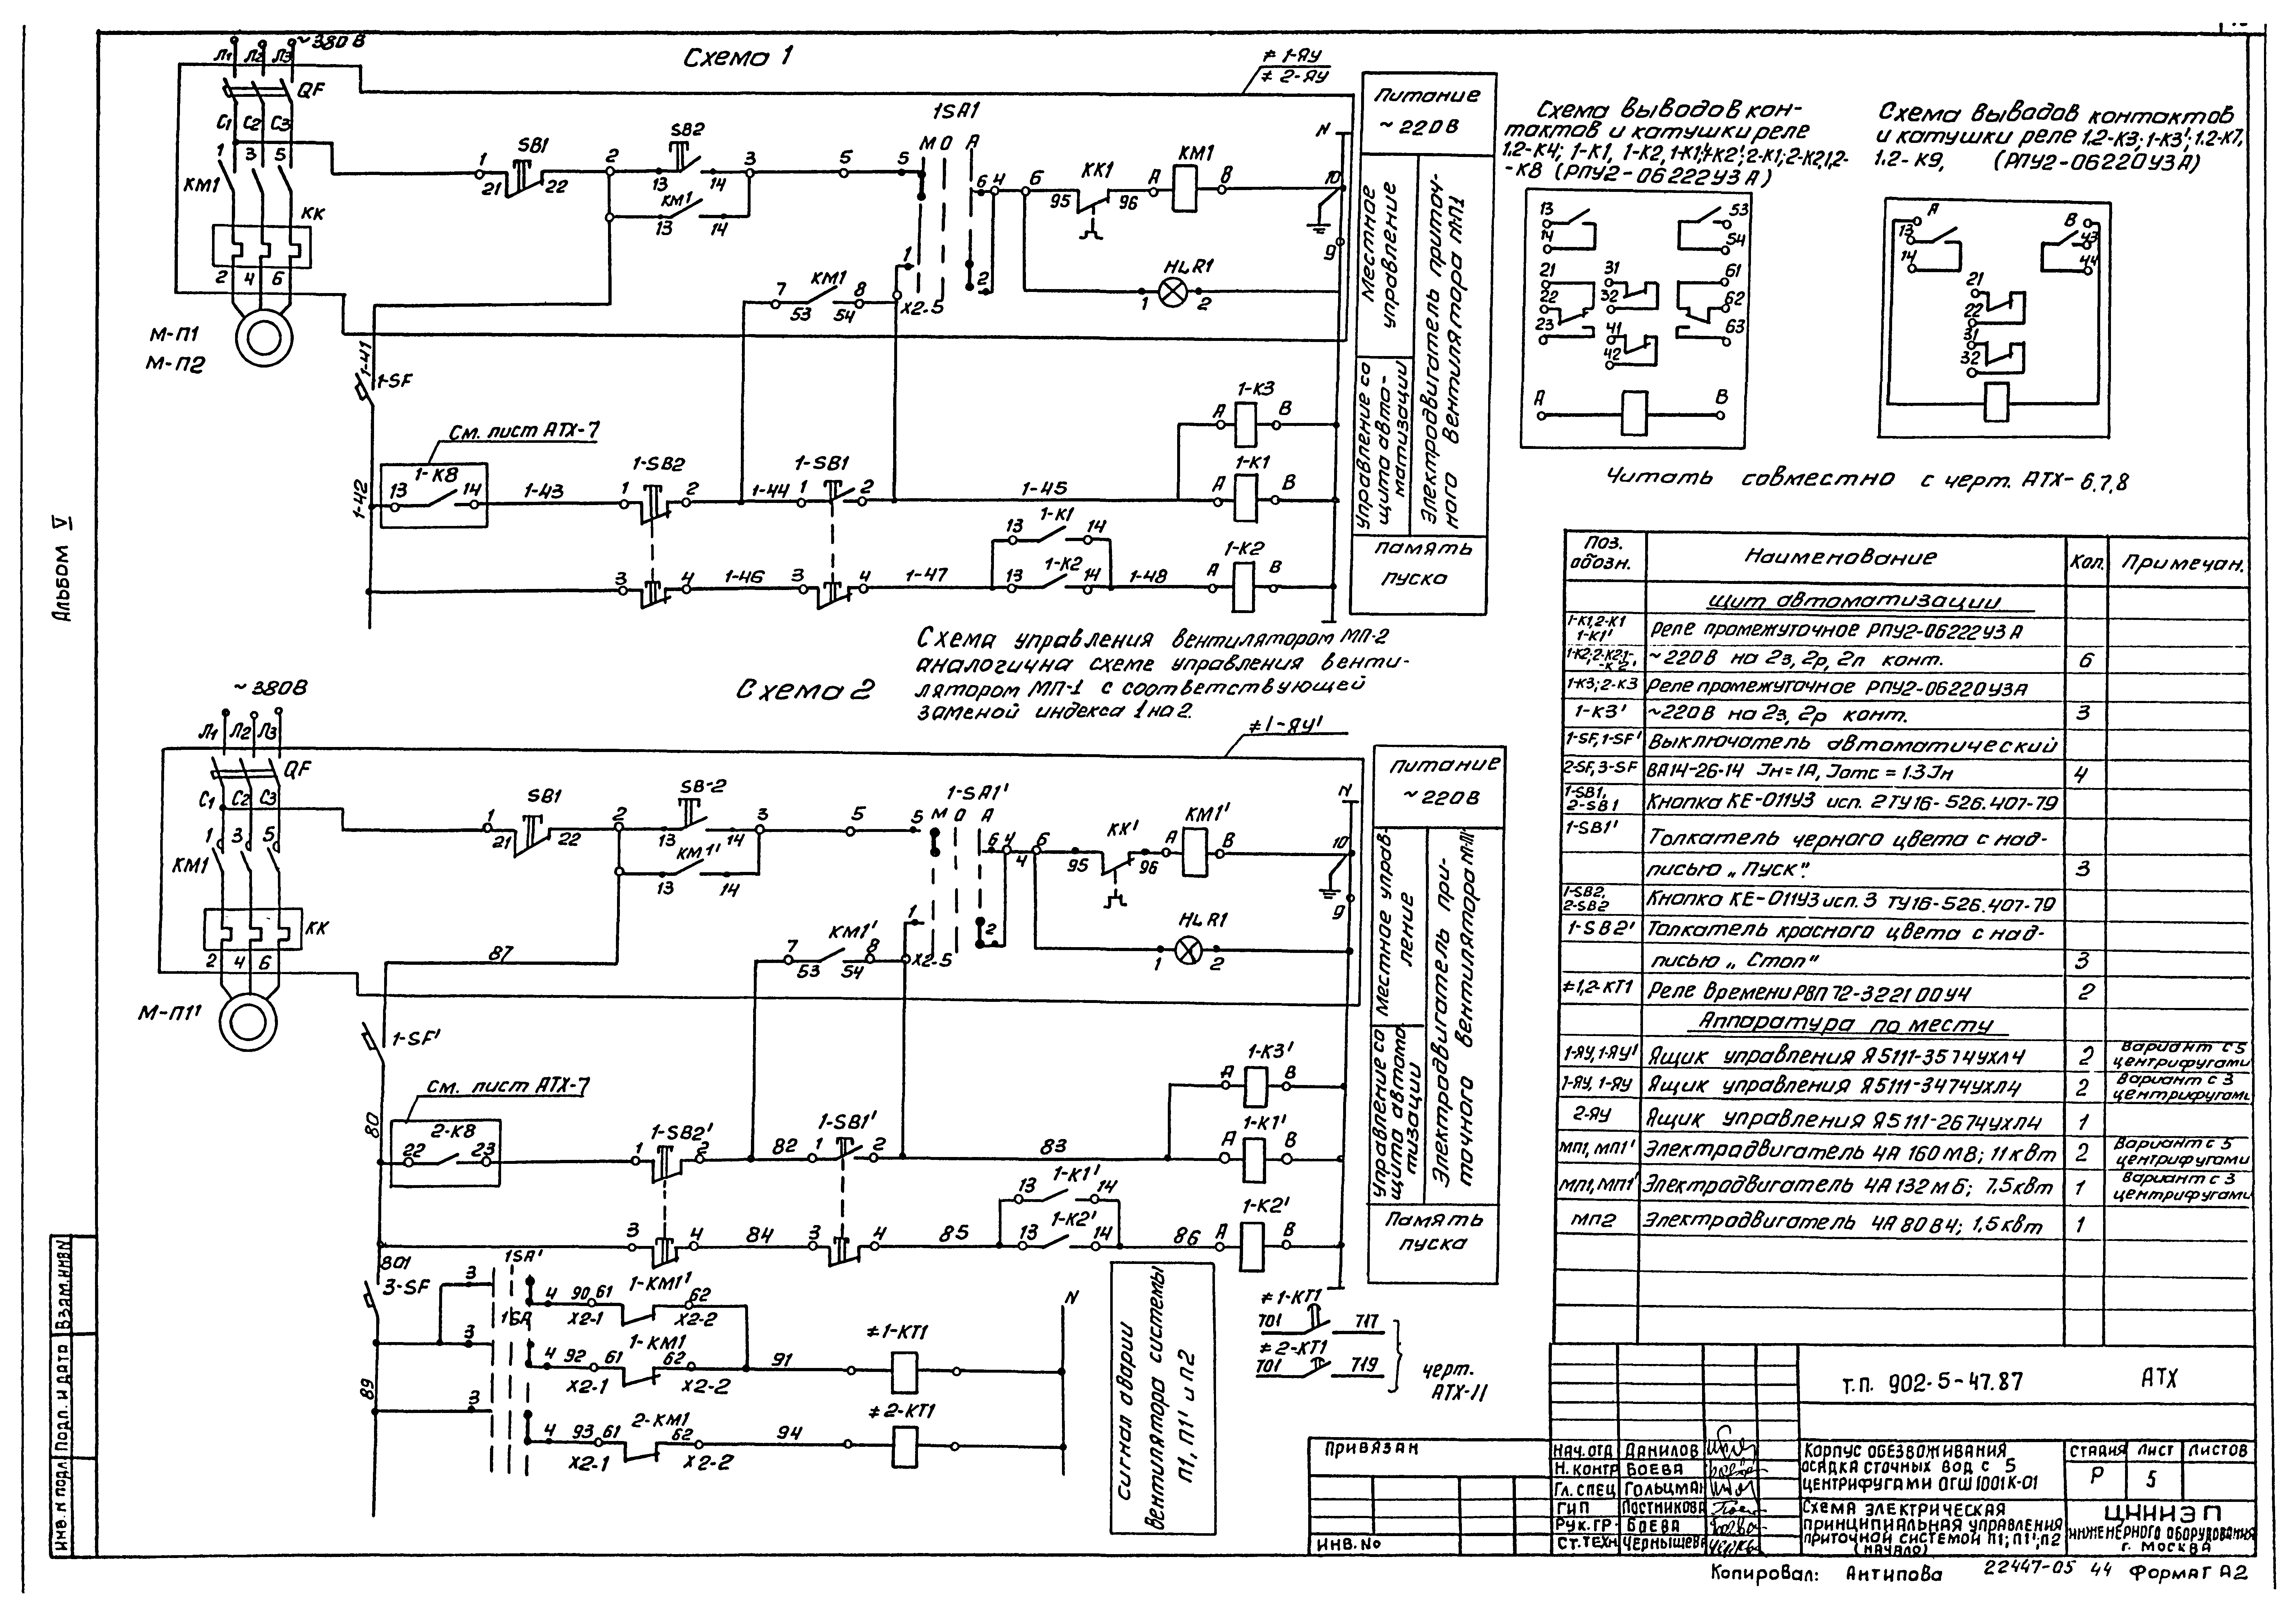 Схема 1
~380 В
Л1 Л2 Л3
QF
С1 С2 С3
1 3 5
КМ1
КК
2 4 6
М-П1
М-П2
≠ 1-ЯУ
≠ 2-ЯУ
1 SB1 2 SB2 3 5 5
21 22 13 14
КМ1
13 14
1SA1
М О А
6 4 6 КК1 А КМ1 В
95 96
N
10
9
1 2
HLR1
1 2
7 КМ1 8
53 54 Х2-5
1-41
1-SF
См. лист АТХ-7
1-К8
13 14 1-43 1 1-SB2 2 1-44 1 1-SB1 2 1-45
1-42
А 1-К3 В
А 1-К1 В
13 1-К1 14
3 4 1-46 3 4 1-47 13 1-К2 14 1-48 А 1-К2 В
Питание
~ 220 В
Местное
управление
Управление со
щита авто-
матизации
Электродвигатель приточ-
ного вентилятора МП1
Память
пуска
Схема управления вентилятором МП-2
аналогична схеме управления венти-
лятором МП-1 с соответствующей
заменой индекса 1 на 2.
Схема 2
~ 380В
Л1 Л2 Л3
QF
С1 С2 С3
1 3 5
КМ1
КК
2 4 6
М-П1'
≠1-ЯУ'
1 SB1 2 SB-2 3 5 5
21 22 13 14
КМ1'
13 14
1-SA1'
М О А
6 4 6 КК' А КМ1' В
4
95 96
N
10
9
1 2
HLR1
1 2
7 КМ1' 8
53 54 Х2-5
87
1-SF'
См. лист АТХ-7
80
2-К8
22 23 1 1-SB2' 2 82 1 1-SB1' 2 83
А 1-К3' В
А 1-К1' В
13 1-К1' 14
3 4 84 3 4 85 13 1-К2' 14 86 А 1-К2' В
801
3-SF
89
1SA'
1SA
3 4 90 61 1-КМ1' 62
Х2-1 Х2-2
3 4 92 61 1-КМ1 62 91 ≠1-КТ1
Х2-1 Х2-2
3 4 93 61 2-КМ1 62 94 ≠2-КТ1
Х2-1 Х2-2
N
Сигнал аварии
вентилятора системы
П1, П1' и П2
≠1-КТ1
701 717
≠2-КТ1
701 719
черт.
АТХ-11
Питание
~ 220В
Местное управ-
ление
Управление со
щита автома
тизации
Электродвигатель при-
точного вентилятора М-П1'
Память
пуска
Схема выводов кон-
тактов и катушки реле
1,2-К4; 1-К1, 1-К2, 1-К1',1-К2'; 2-К1; 2-К2,1,2-
-К8 (РПУ2-06222У3 А)
13 53
14 54
21 31 61
22 32 62
23 41 63
42
А В
Схема выводов контактов
и катушки реле 1,2-К3; 1-К3'; 1,2-К7,
1,2-К9, (РПУ2-06220У3А)
А В
13 43
14 44
21
22
31
32
Читать совместно с черт. АТХ-6,7,8
Поз. обозн. Наименование Кол. Примечан.
Щит автоматизации
1-К1,2-К1 1-К1' Реле промежуточное РПУ2-06222У3 А
~ 220 В на 2з, 2р, 2п конт. 6
1-К3; 2-К3 Реле промежуточное РПУ2-06220У3А
1-К3' ~220 В на 2з, 2р конт. 3
1-SF, 1-SF' Выключатель автоматический
2-SF, 3-SF ВА14-26-14 Jн=1А, Jотс = 1.3 Jн 4
1-SB1, 2-SB1 Кнопка КЕ-011У3 исп. 2 ТУ16-526.407-79
1-SB1' Толкатель черного цвета с над-
писью „Пуск". 3
1-SB2, 2-SB2 Кнопка КЕ-011У3 исп. 3 ТУ16-526.407-79
1-SB2' Толкатель красного цвета с над-
писью „Стоп" 3
≠1,2-КТ1 Реле времени РВП 72-3221 00У4 2
Аппаратура по месту
1-ЯУ, 1-ЯУ' Ящик управления Я5111-3574УХЛ4 2 Вариант с 5 центрифугами
1-ЯУ, 1-ЯУ Ящик управления Я5111-3474УХЛ4 2 Вариант с 3 центрифугами
2-ЯУ Ящик управления Я5111-2674УХЛ4 1
МП1, МП1' Электродвигатель 4А 160 М8; 11 квт 2 Вариант с 5 центрифугами
МП1, МП1' Электродвигатель 4А 132 М 6; 7,5квт 1 Вариант с 3 центрифугами
МП2 Электродвигатель 4А 80 В4; 1,5 квт 1
Т.П. 902-5-47.87 АТХ
Привязан
ИНВ. №
Нач. отд Данилов
Н. контр Боева
Гл. спец Гольцман
ГИП Постникова
Рук. гр. Боева
Ст. техн Чернышева
Корпус обезвоживания
осадка сточных вод с 5
центрифугами ОГШ 1001К-01
Стадия Лист Листов
Р 5
Схема электрическая
принципиальная управления
приточной системой П1; П1'; П2
(начало)
ЦНИИЭП
инженерного оборудования
г. Москва
Копировал: Антипова 22447-05 44 Формат А2
Альбом V
Инв. № подл. Подп. и дата Взам. инв №